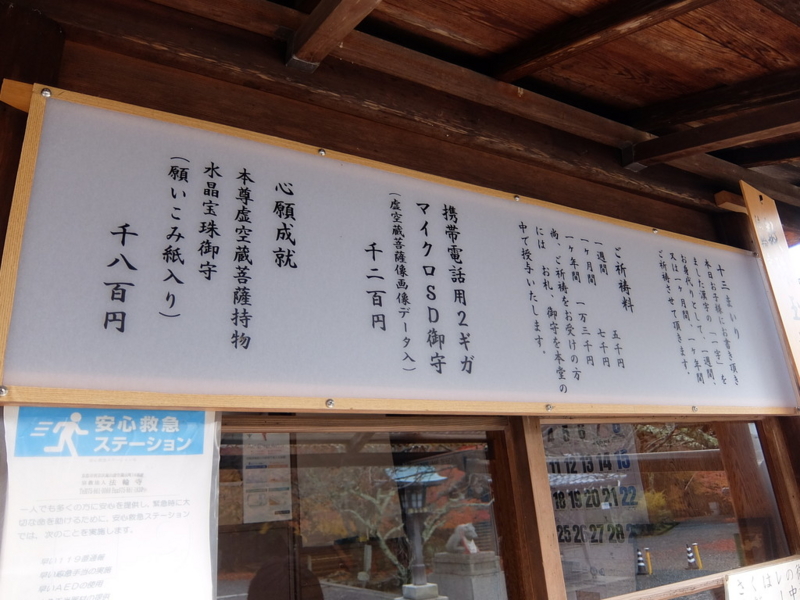 十三まいり
本日お子様にお書き頂き
ました漢字の「一字」を
お身代りとして、一週間、
又は一ヶ月間、一ヶ年間
ご祈祷させて頂きます。
ご祈祷料
一週間 五千円
一ヶ月間 七千円
一ヶ年間 一万三千円
尚、ご祈祷をお受けの方
には、お札、御守を本堂の
中で授与いたします。
携帯電話用2ギガ
マイクロSD御守
(虚空蔵菩薩像画像データ入)
千二百円
心願成就
本尊虚空蔵菩薩持物
水晶宝珠御守
(願いこみ紙入り)
千八百円
安心救急
ステーション
法輪寺
一人でも多くの方に安心を提供し、緊急時に大
切な命を助けるために、安心救急ステーション
では、次のことを実施します。
早い119番通報
早いAEDの使用
4 5 6 8
11 12 13 14 15
18 19 20 21 22
25 26 27 28
さくはしの